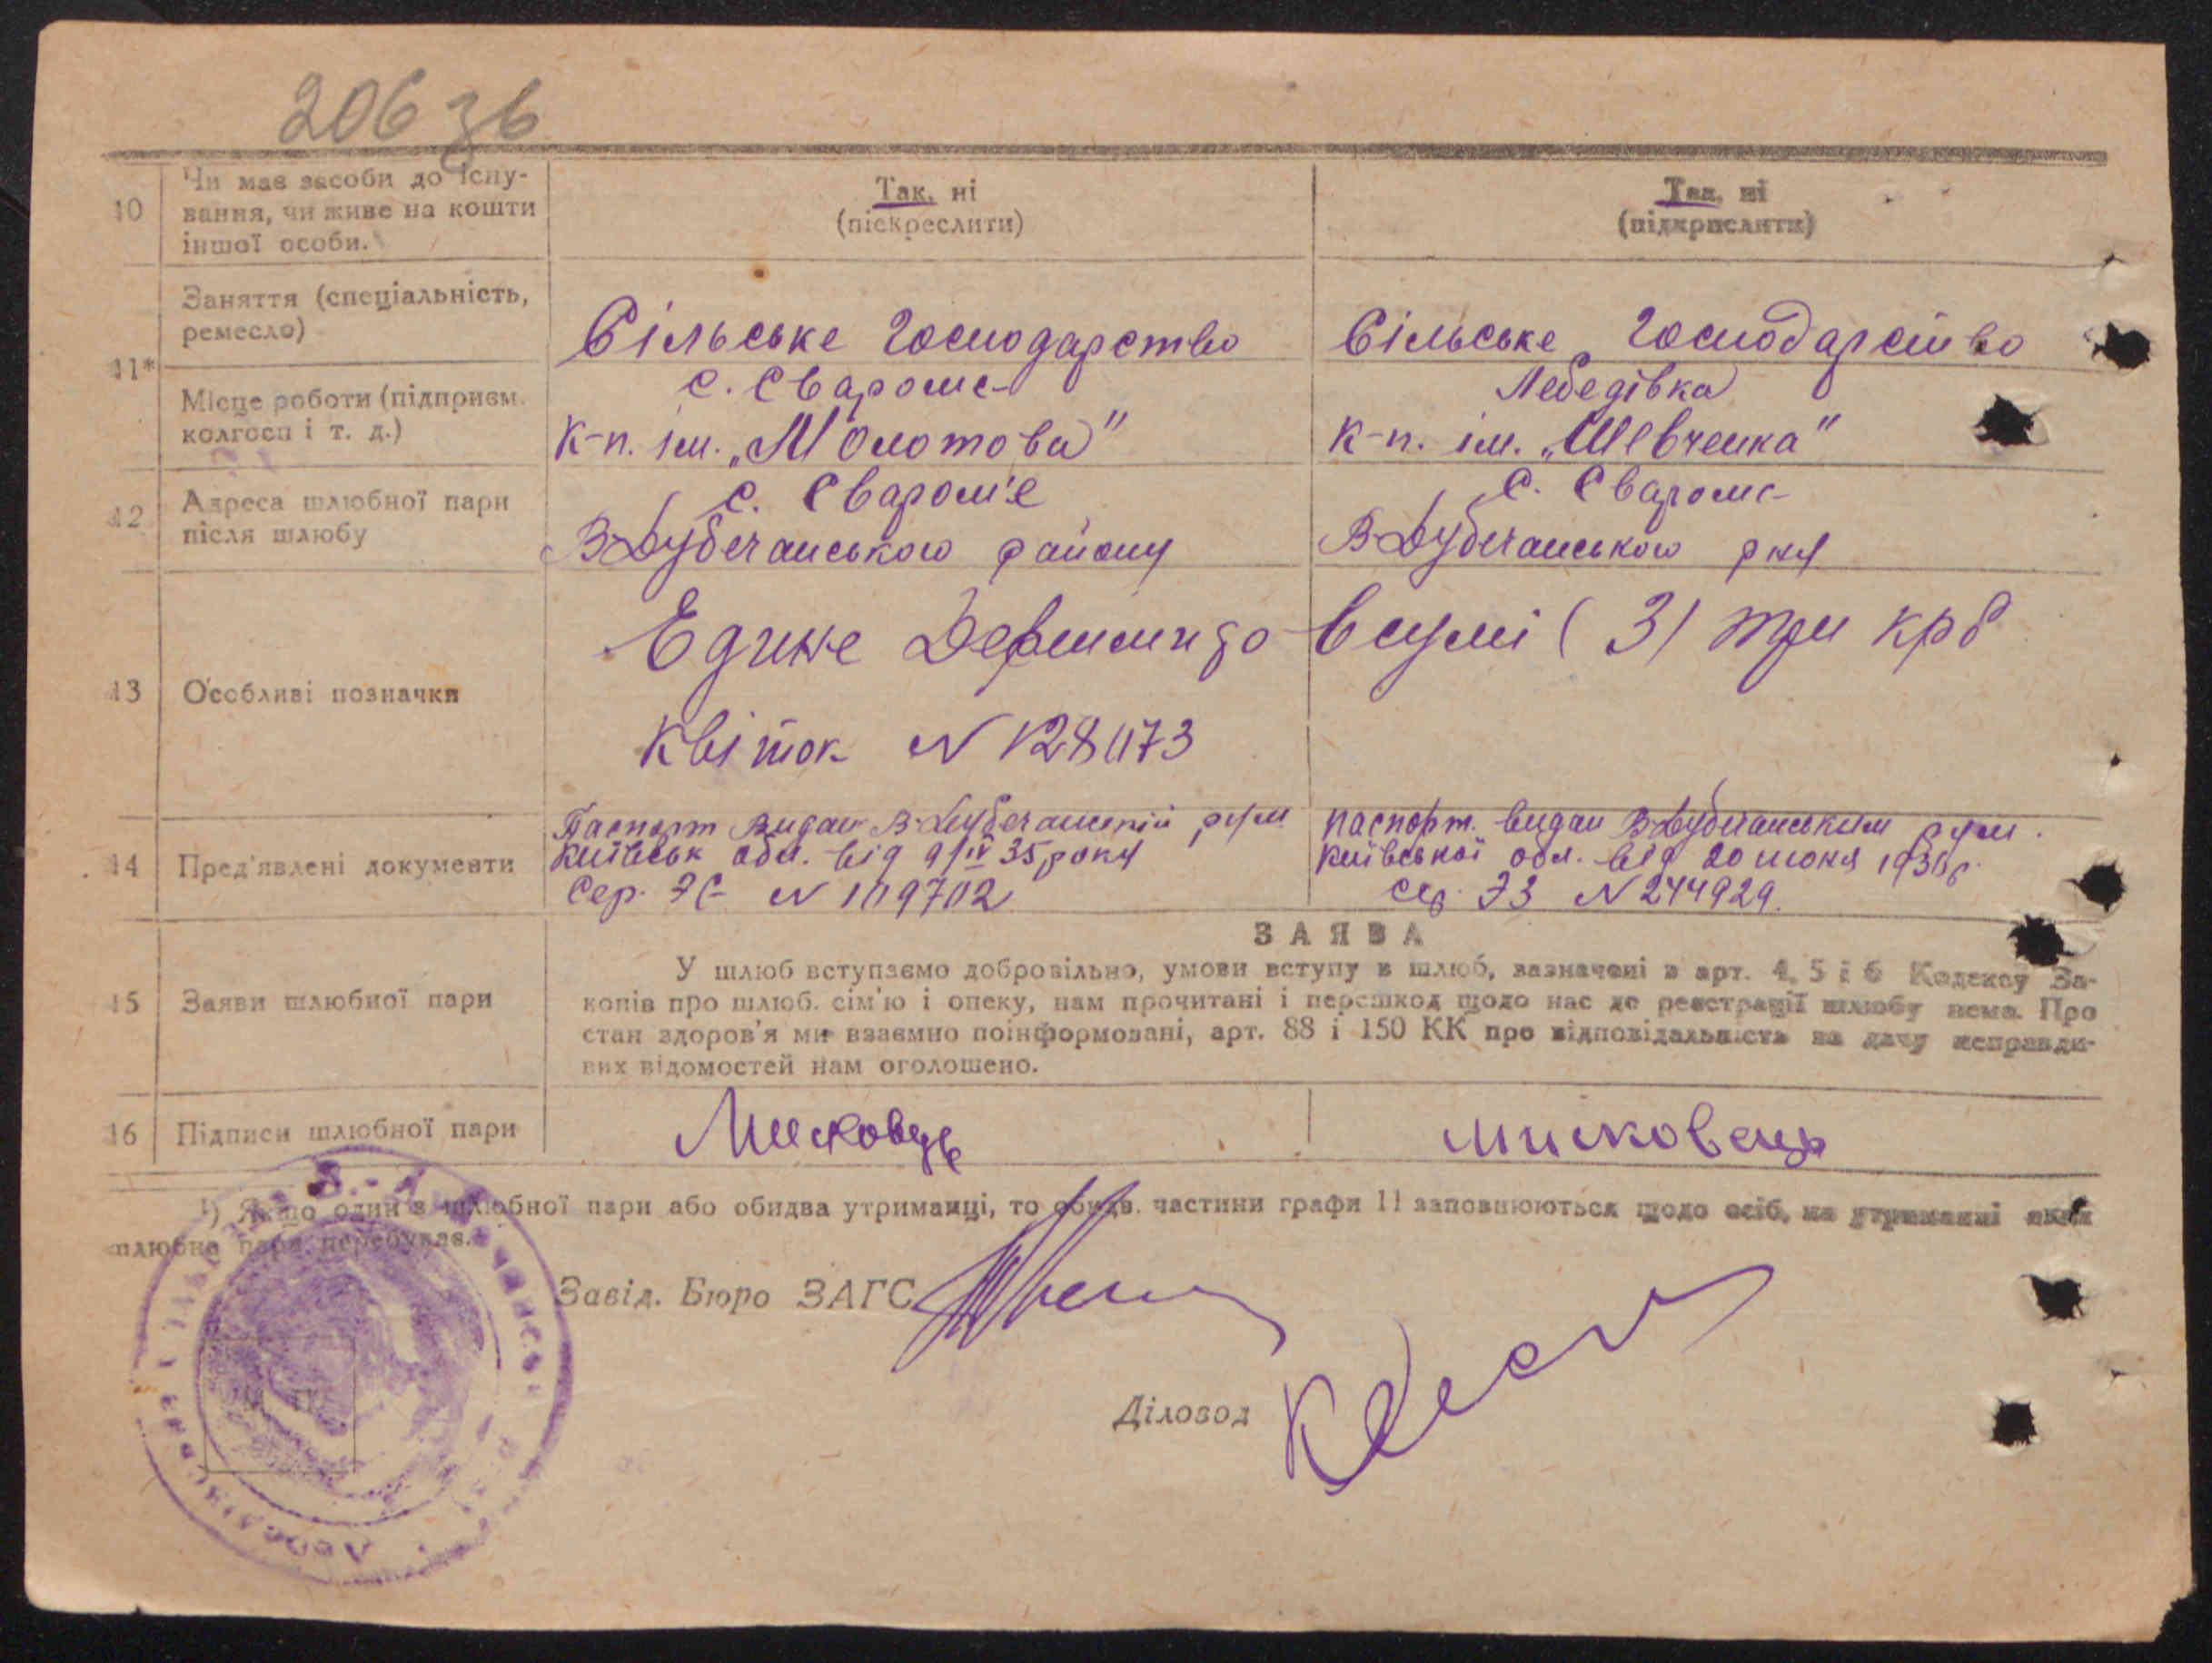 206 зв
10
Чи має засоби до існу-
вання, чи живе на кошти
іншої особи.
Так, ні
(піскреслити)
Так, ні
(підкрислити)
11*
Заняття (спеціальність,
ремесло)
Сільське господарство
Сільське господарство
Місце роботи (підприєм.
колгосп і т. д.)
с. Сваромє
к-п. ім. „Молотова"
Лебедівка
к-п. ім. „Шевченка"
12
Адреса шлюбної пари
після шлюбу
с. Сваром'є
В-Дубечанського району
с. Сваромє
В-Дубечанського р-ну
13
Особливі позначки
Едине Держмито в сумі (3) три крб
Квіток N 128073
14
Пред'явлені документи
Паспорт видан В-Дубечанскій
Київськ обл. від 9/IV 35 року
Сер. N 109702
паспорт. видан В-Дубечанським
Київської обл. від 20
сер. ЭЗ N 244929.
15
Заяви шлюбної пари
ЗАЯВА
У шлюб вступаємо добровільно, умови вступу в шлюб, зазначені в арт. 4, 5 і 6 Кодексу За-
конів про шлюб. сім'ю і опеку, нам прочитані і перешкод щодо нас де реєстрації шлюбу нема. Про
стан здоров'я ми взаємно поінформовані, арт. 88 і 150 КК про відповідальність за дачу неправди-
вих відомостей нам оголошено.
16
Підписи шлюбної пари
Мисковець
мисковець
¹) Якщо один з шлюбної пари або обидва утриманці, то обидв. частини графи 11 заповнюються щодо осіб, на утриманні яких
шлюбна пара перебуває.
Завід. Бюро ЗАГС
Діловод